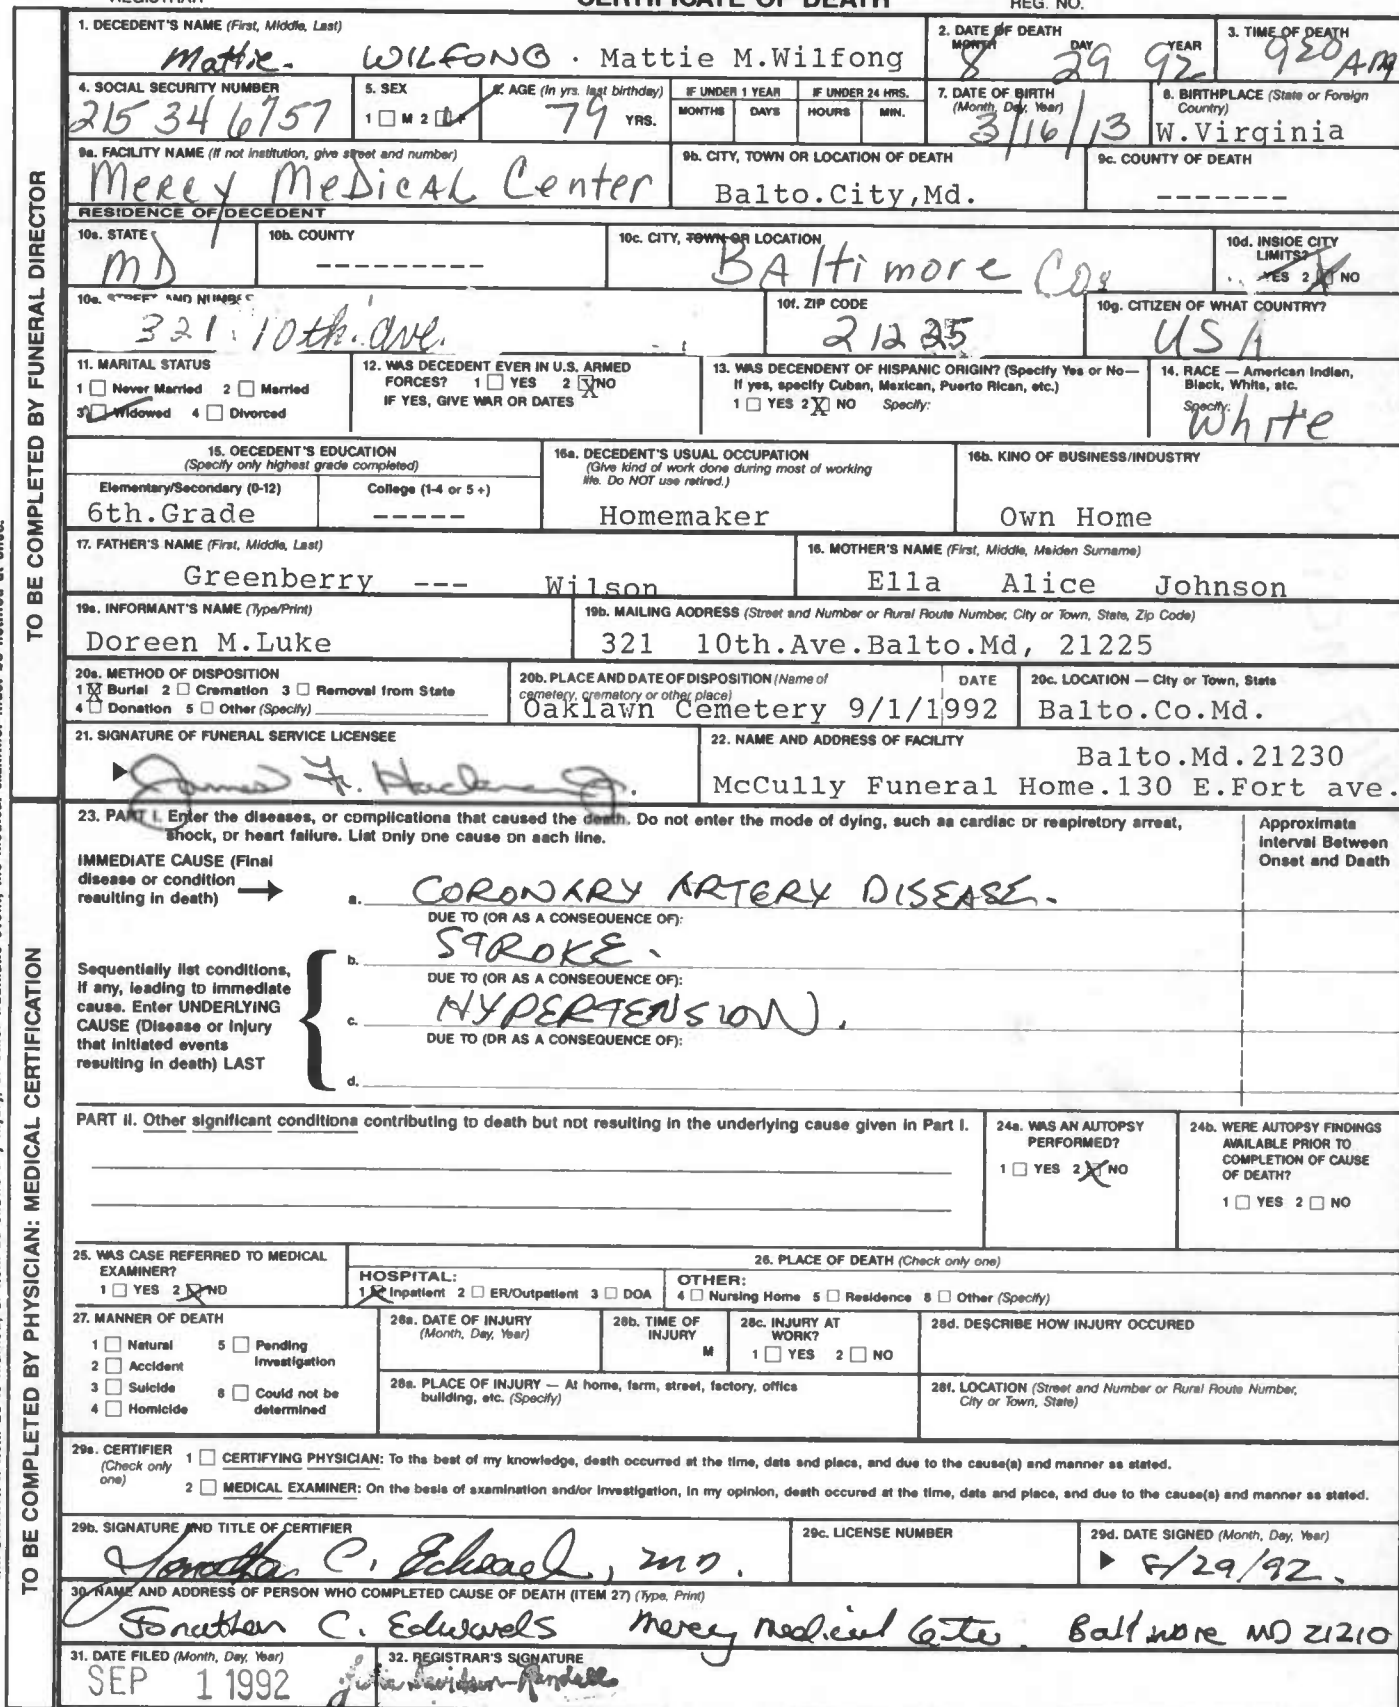 REGISTRAR
CERTIFICATE OF DEATH
REG. NO.
TO BE COMPLETED BY FUNERAL DIRECTOR
1. DECEDENT'S NAME (First, Middle, Last)
Mattie. WILFONG . Mattie M.Wilfong
2. DATE OF DEATH
MONTH DAY YEAR
8 29 92
3. TIME OF DEATH
920 AM
4. SOCIAL SECURITY NUMBER
215 34 6757
5. SEX
1 M 2 F
6. AGE (In yrs. last birthday)
79 YRS.
IF UNDER 1 YEAR
MONTHS DAYS
IF UNDER 24 HRS.
HOURS MIN.
7. DATE OF BIRTH
(Month, Day, Year)
3/16/13
8. BIRTHPLACE (State or Foreign
Country)
W.Virginia
9a. FACILITY NAME (If not institution, give street and number)
Mercy MeDicAL Center
9b. CITY, TOWN OR LOCATION OF DEATH
Balto.City,Md.
9c. COUNTY OF DEATH
-------
RESIDENCE OF DECEDENT
10a. STATE
MD
10b. COUNTY
---------
10c. CITY, TOWN OR LOCATION
BAltimore
10d. INSIDE CITY
LIMITS?
YES 2 NO
10e. STREET AND NUMBER
321. 10th. ave.
10f. ZIP CODE
21225
10g. CITIZEN OF WHAT COUNTRY?
USA
11. MARITAL STATUS
1 Never Married 2 Married
3 Widowed 4 Divorced
12. WAS DECEDENT EVER IN U.S. ARMED
FORCES? 1 YES 2 X NO
IF YES, GIVE WAR OR DATES
13. WAS DECENDENT OF HISPANIC ORIGIN? (Specify Yes or No—
If yes, specify Cuban, Mexican, Puerto Rican, etc.)
1 YES 2 X NO Specify:
14. RACE — American Indian,
Black, White, etc.
Specify:
White
15. DECEDENT'S EDUCATION
(Specify only highest grade completed)
Elementary/Secondary (0-12) College (1-4 or 5 +)
6th.Grade -----
16a. DECEDENT'S USUAL OCCUPATION
(Give kind of work done during most of working
life. Do NOT use retired.)
Homemaker
16b. KIND OF BUSINESS/INDUSTRY
Own Home
17. FATHER'S NAME (First, Middle, Last)
Greenberry --- Wilson
18. MOTHER'S NAME (First, Middle, Maiden Surname)
Ella Alice Johnson
19a. INFORMANT'S NAME (Type/Print)
Doreen M.Luke
19b. MAILING ADDRESS (Street and Number or Rural Route Number, City or Town, State, Zip Code)
321 10th.Ave.Balto.Md, 21225
20a. METHOD OF DISPOSITION
1 X Burial 2 Cremation 3 Removal from State
4 Donation 5 Other (Specify)
20b. PLACE AND DATE OF DISPOSITION (Name of DATE
cemetery, crematory or other place)
Oaklawn Cemetery 9/1/1992
20c. LOCATION — City or Town, State
Balto.Co.Md.
21. SIGNATURE OF FUNERAL SERVICE LICENSEE
James F.
22. NAME AND ADDRESS OF FACILITY
Balto.Md.21230
McCully Funeral Home.130 E.Fort ave.
TO BE COMPLETED BY PHYSICIAN: MEDICAL CERTIFICATION
23. PART I. Enter the diseases, or complications that caused the death. Do not enter the mode of dying, such as cardiac or respiretory arreat,
shock, or heart failure. List only one cause on each line.
Approximate
Interval Between
Onset and Death
IMMEDIATE CAUSE (Final
disease or condition
resulting in death)
a. CORONARY ARTERY DISEASE.
DUE TO (OR AS A CONSEQUENCE OF):
b. STROKE.
DUE TO (OR AS A CONSEQUENCE OF):
c. HYPERTENSION.
DUE TO (OR AS A CONSEQUENCE OF):
d.
Sequentially list conditions,
if any, leading to immediate
cause. Enter UNDERLYING
CAUSE (Disease or Injury
that initiated events
resulting in death) LAST
PART II. Other significant conditions contributing to death but not resulting in the underlying cause given in Part I.
24a. WAS AN AUTOPSY
PERFORMED?
1 YES 2 X NO
24b. WERE AUTOPSY FINDINGS
AVAILABLE PRIOR TO
COMPLETION OF CAUSE
OF DEATH?
1 YES 2 NO
25. WAS CASE REFERRED TO MEDICAL
EXAMINER?
1 YES 2 X NO
26. PLACE OF DEATH (Check only one)
HOSPITAL:
1 X Inpatient 2 ER/Outpatient 3 DOA
OTHER:
4 Nursing Home 5 Residence 6 Other (Specify)
27. MANNER OF DEATH
1 Natural 5 Pending
2 Accident Investigation
3 Suicide 6 Could not be
4 Homicide determined
28a. DATE OF INJURY
(Month, Day, Year)
28b. TIME OF
INJURY
M
28c. INJURY AT
WORK?
1 YES 2 NO
28d. DESCRIBE HOW INJURY OCCURED
28e. PLACE OF INJURY — At home, farm, street, factory, office
building, etc. (Specify)
28f. LOCATION (Street and Number or Rural Route Number,
City or Town, State)
29a. CERTIFIER
(Check only
one)
1 CERTIFYING PHYSICIAN: To the best of my knowledge, death occurred at the time, date and place, and due to the cause(s) and manner as stated.
2 MEDICAL EXAMINER: On the besis of examination and/or investigation, in my opinion, death occured at the time, date and place, and due to the cause(s) and manner as stated.
29b. SIGNATURE AND TITLE OF CERTIFIER
Jonathan C. Edwards, MD.
29c. LICENSE NUMBER
29d. DATE SIGNED (Month, Day, Year)
8/29/92.
30. NAME AND ADDRESS OF PERSON WHO COMPLETED CAUSE OF DEATH (ITEM 27) (Type, Print)
Jonathan C. Edwards Mercy Medical Center. Baltimore MD 21210
31. DATE FILED (Month, Day, Year)
SEP 1 1992
32. REGISTRAR'S SIGNATURE
Julia Davidson-Randall